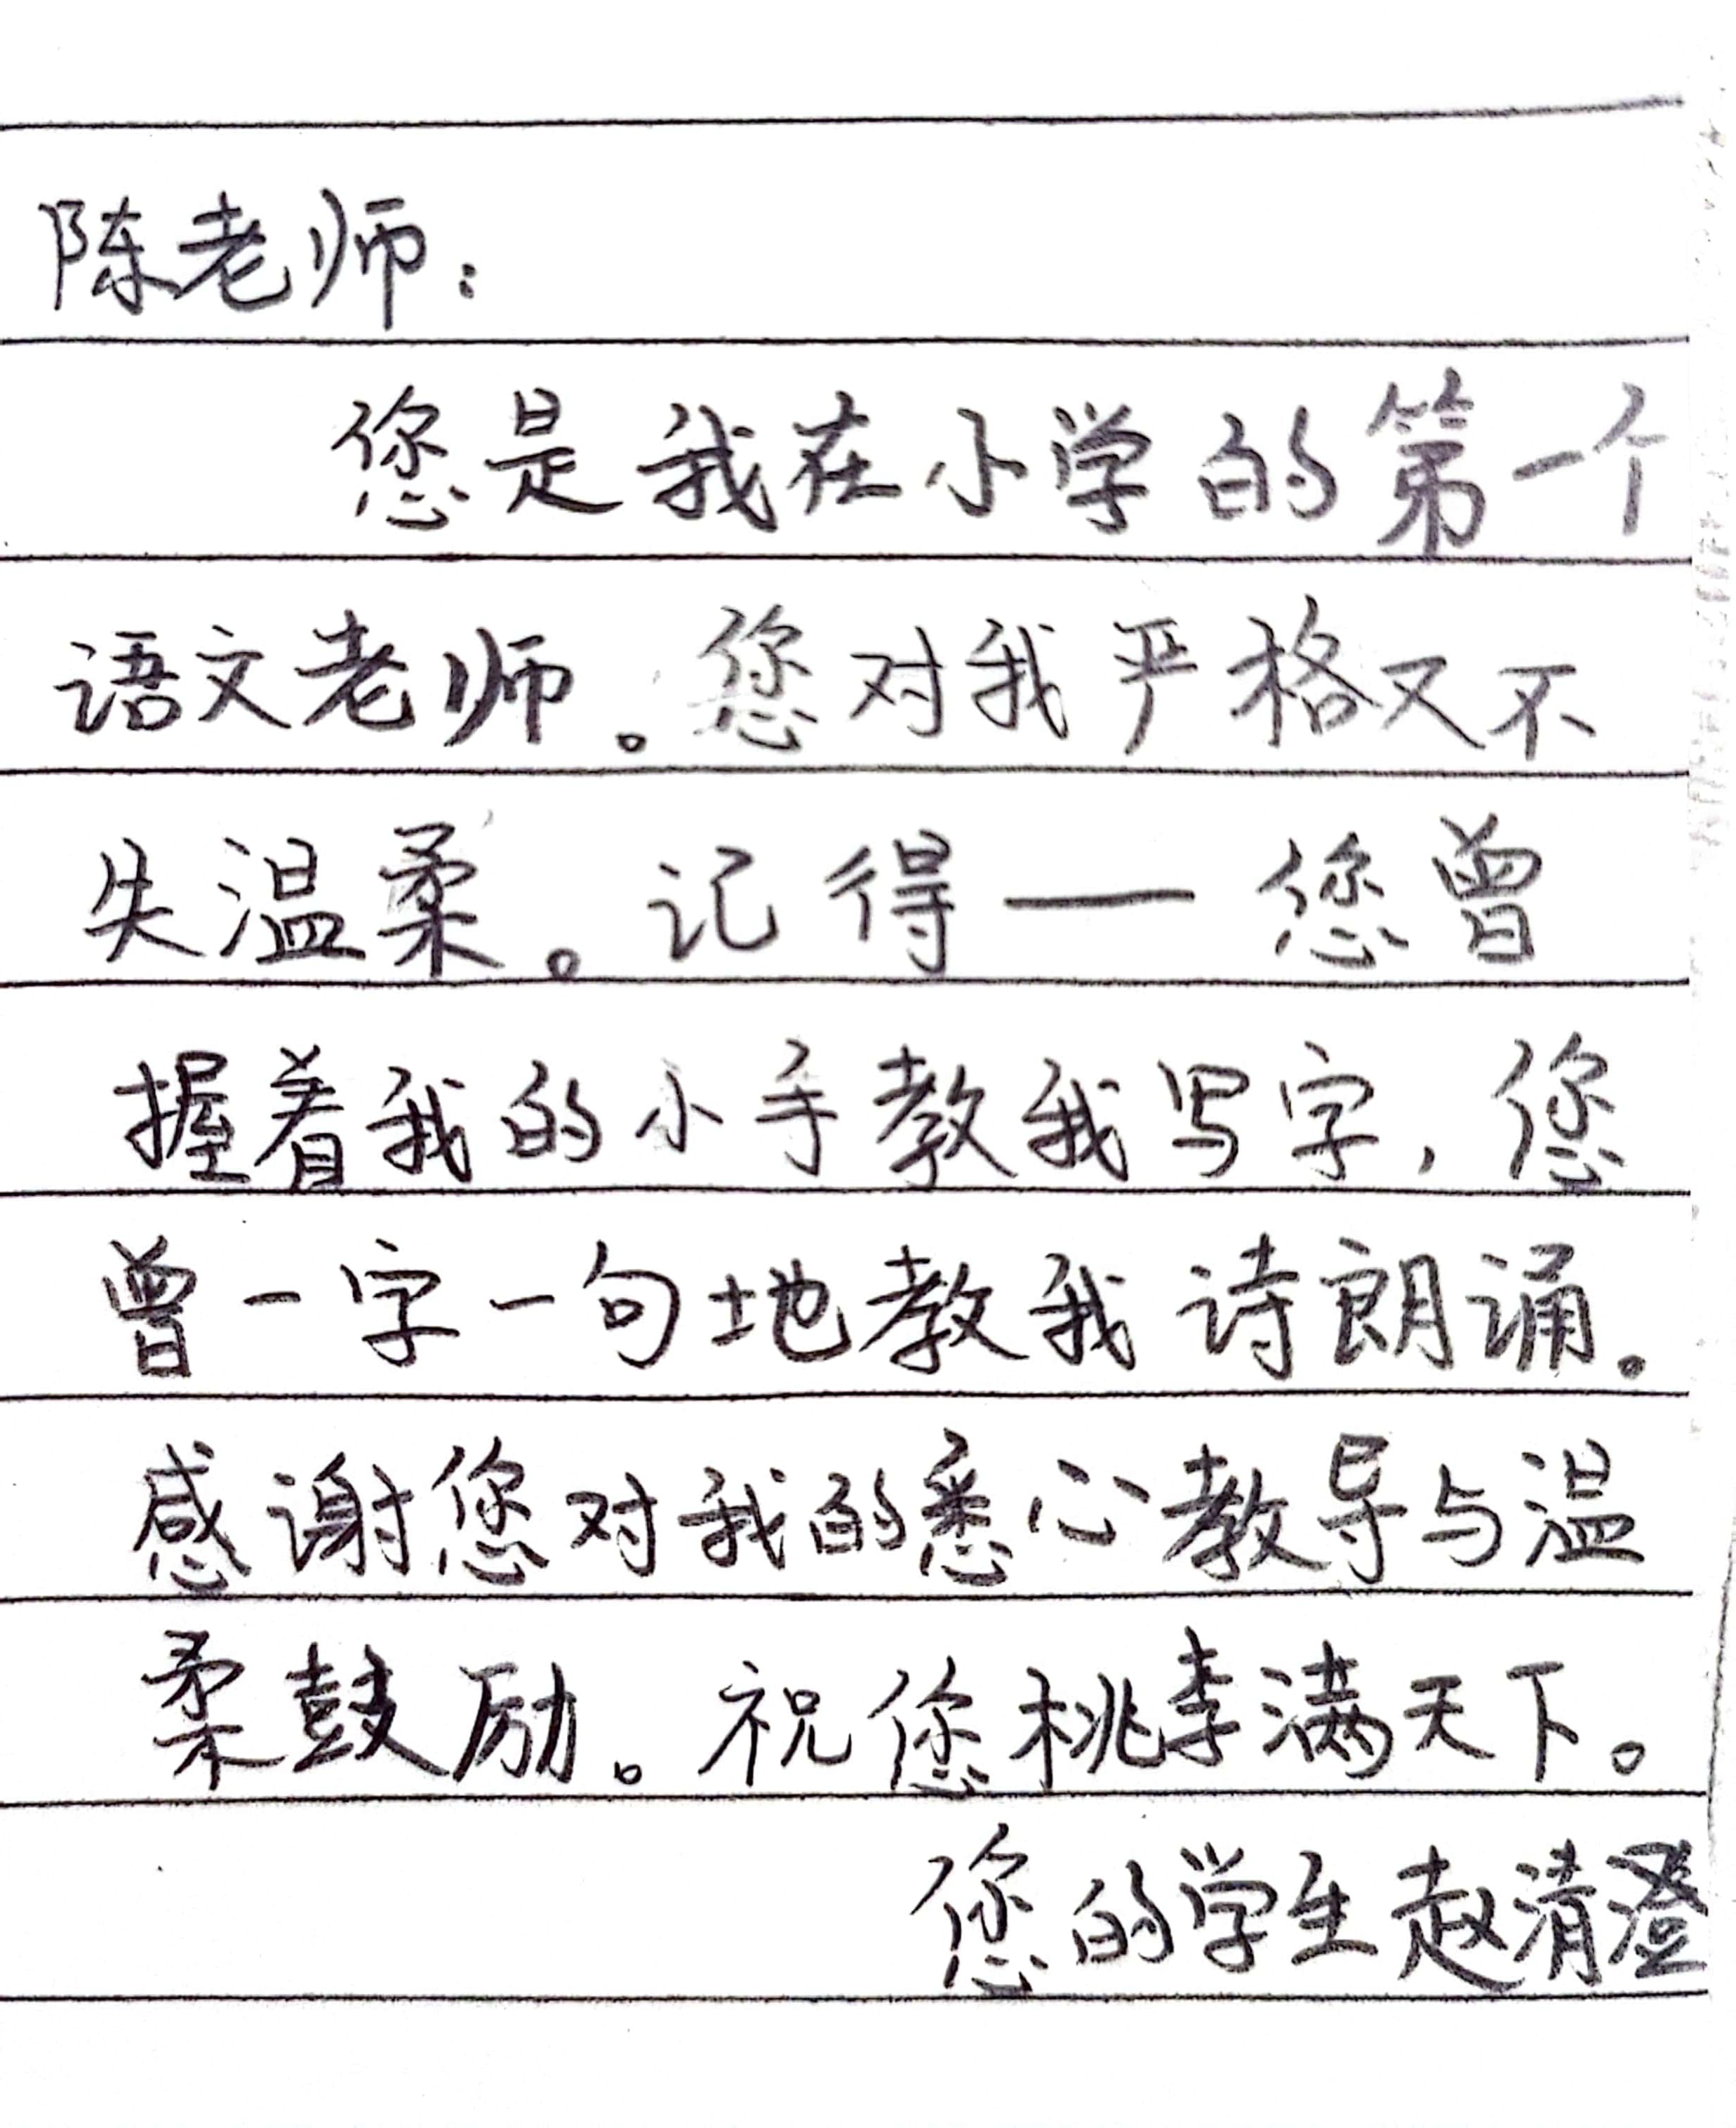 陈老师：
您是我在小学的第一个
语文老师。您对我严格又不
失温柔。记得——您曾
握着我的小手教我写字，您
曾一字一句地教我诗朗诵。
感谢您对我的悉心教导与温
柔鼓励。祝您桃李满天下。
您的学生赵清澄